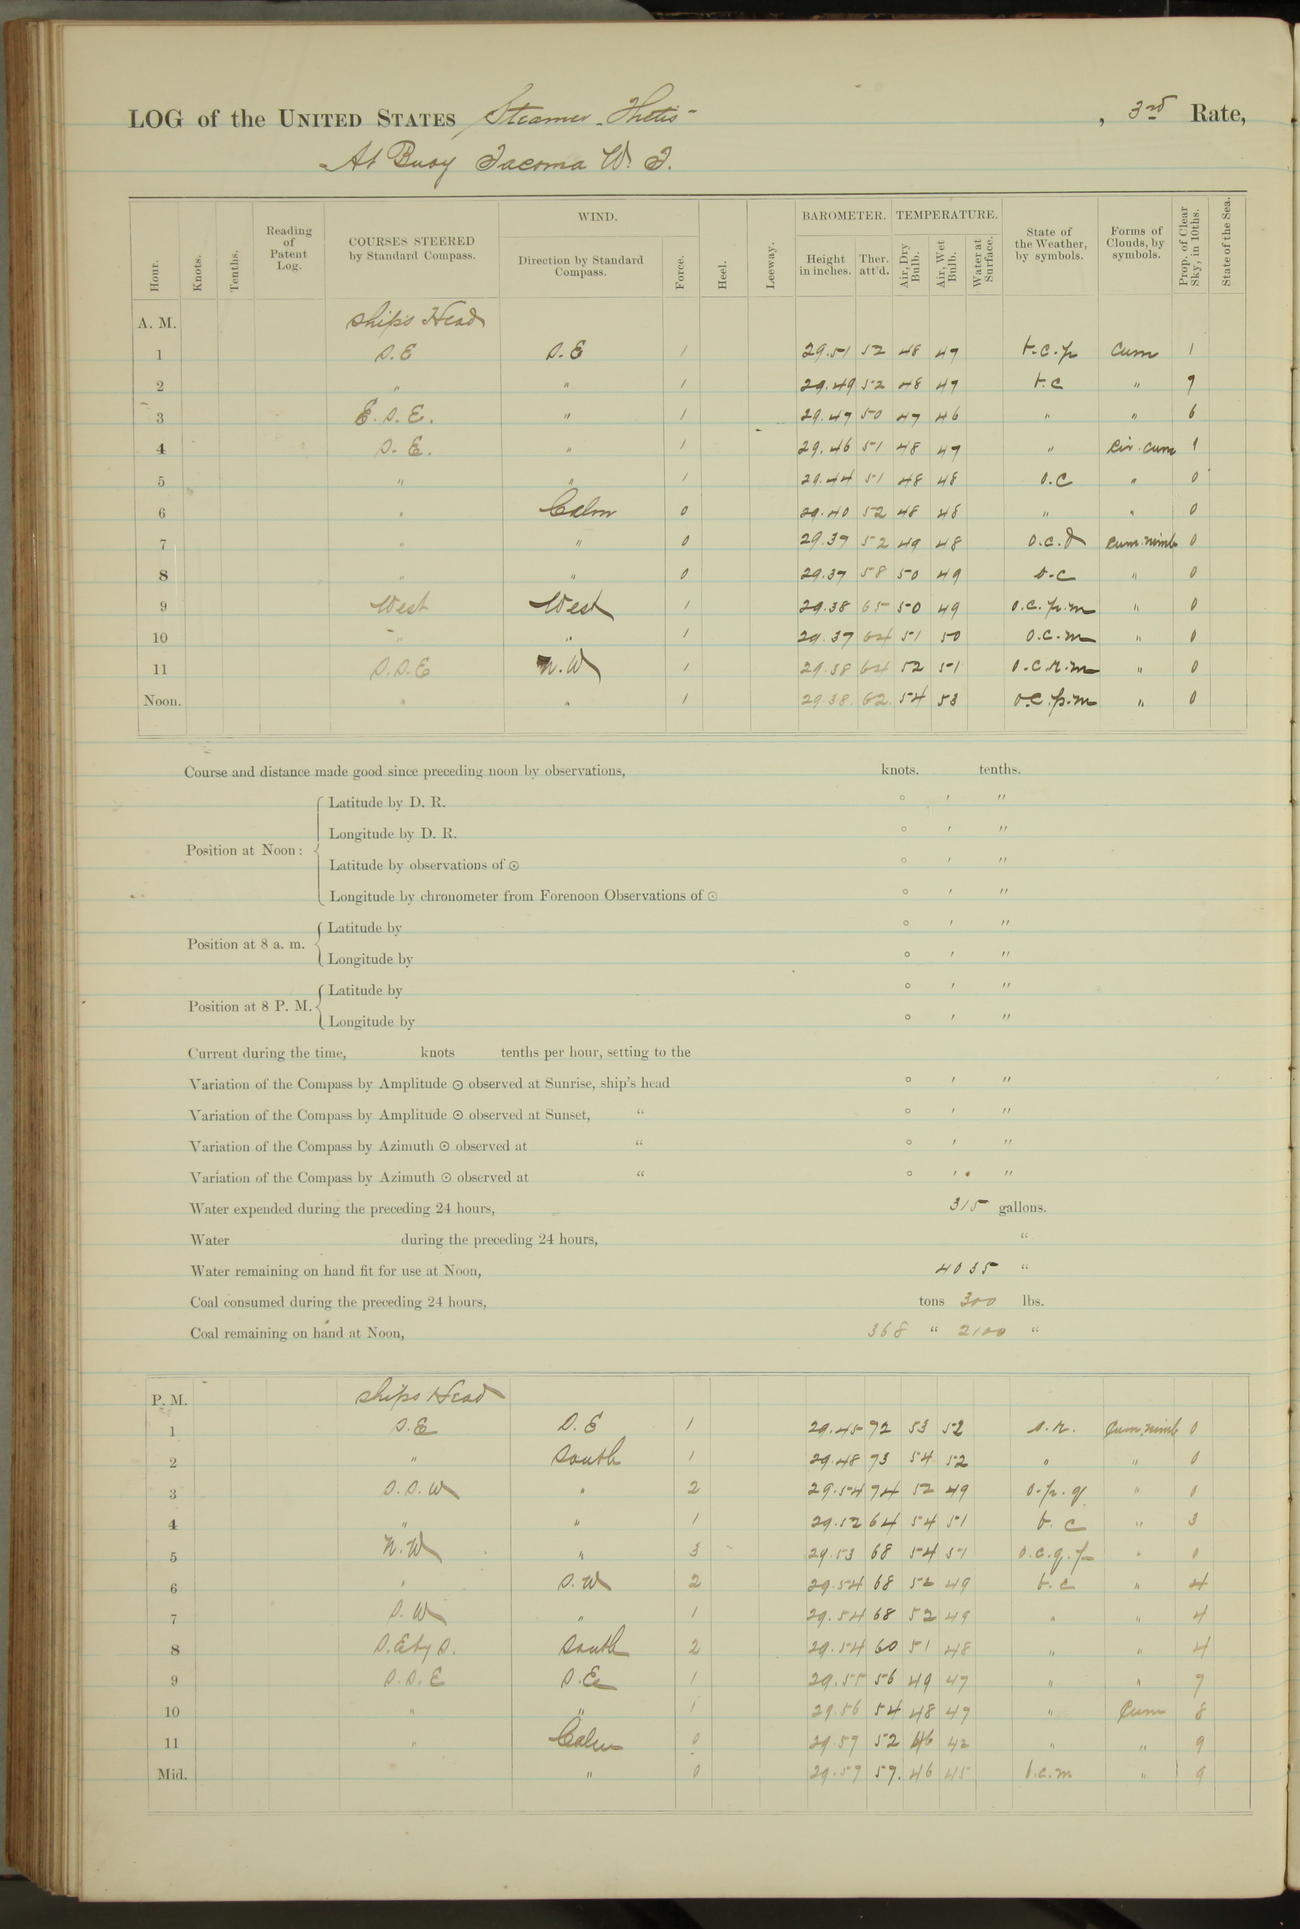 LOG of the UNITED STATES Steamer Thetis , 3rd Rate,
At Buoy Tacoma W. T.
Hour. Knots. Tenths. Reading of Patent Log. COURSES STEERED by Standard Compass. WIND. Direction by Standard Compass. Force. Heel. Leeway. BAROMETER. Height in inches. Ther. att'd. TEMPERATURE. Air, Dry Bulb. Air, Wet Bulb. Water at Surface. State of the Weather, by symbols. Forms of Clouds, by symbols. Prop. of Clear Sky, in 10ths. State of the Sea.
A. M. Ships Head
1 S.E S.E 1 29.51 52 48 47 b.c.p Cum 1
2 " " 1 29.49 52 48 47 b.c " 7
3 E.S.E. " 1 29.47 50 47 46 " " 6
4 S.E. " 1 29.46 51 48 47 " Cir.cum 1
5 " " 1 29.44 51 48 48 o.c " 0
6 " Calm 0 29.40 52 48 48 " " 0
7 " " 0 29.37 52 49 48 o.c.d Cum.nimb 0
8 " " 0 29.37 58 50 49 o.c " 0
9 West West 1 29.38 65 50 49 o.c.p.m " 0
10 " " 1 29.37 64 51 50 o.c.m " 0
11 S.S.E N.W 1 29.38 64 52 51 o.c.r.m " 0
Noon. " " 1 29.38 62 54 53 o.c.p.m " 0
Course and distance made good since preceding noon by observations, knots. tenths.
Position at Noon: Latitude by D. R. ° ′ ″
Longitude by D. R. ° ′ ″
Latitude by observations of ☉ ° ′ ″
Longitude by chronometer from Forenoon Observations of ☉ ° ′ ″
Position at 8 a. m. Latitude by ° ′ ″
Longitude by ° ′ ″
Position at 8 P. M. Latitude by ° ′ ″
Longitude by ° ′ ″
Current during the time, knots tenths per hour, setting to the
Variation of the Compass by Amplitude ☉ observed at Sunrise, ship's head ° ′ ″
Variation of the Compass by Amplitude ☉ observed at Sunset, " ° ′ ″
Variation of the Compass by Azimuth ☉ observed at " ° ′ ″
Variation of the Compass by Azimuth ☉ observed at " ° ′ ″
Water expended during the preceding 24 hours, 315 gallons.
Water during the preceding 24 hours, "
Water remaining on hand fit for use at Noon, 4035 "
Coal consumed during the preceding 24 hours, tons 300 lbs.
Coal remaining on hand at Noon, 368 " 2100 "
P. M. Ships Head
1 S.E S.E 1 29.45 72 53 52 o.r. Cum.nimb 0
2 " South 1 29.48 73 54 52 " " 0
3 S.S.W " 2 29.54 74 52 49 o.p.q " 0
4 " " 1 29.52 64 54 51 b.c " 3
5 N.W " 3 29.53 68 54 51 o.c.q.p " 0
6 " S.W 2 29.54 68 52 49 b.c " 4
7 S.W " 1 29.54 68 52 49 " " 4
8 S.E by S. South 2 29.54 60 51 48 " " 4
9 S.S.E S.E 1 29.55 56 49 47 " " 7
10 " " 1 29.56 54 48 47 " Cum 8
11 " Calm 0 29.57 52 46 42 " " 9
Mid. " 0 29.57 57. 46 45 b.c.m " 9